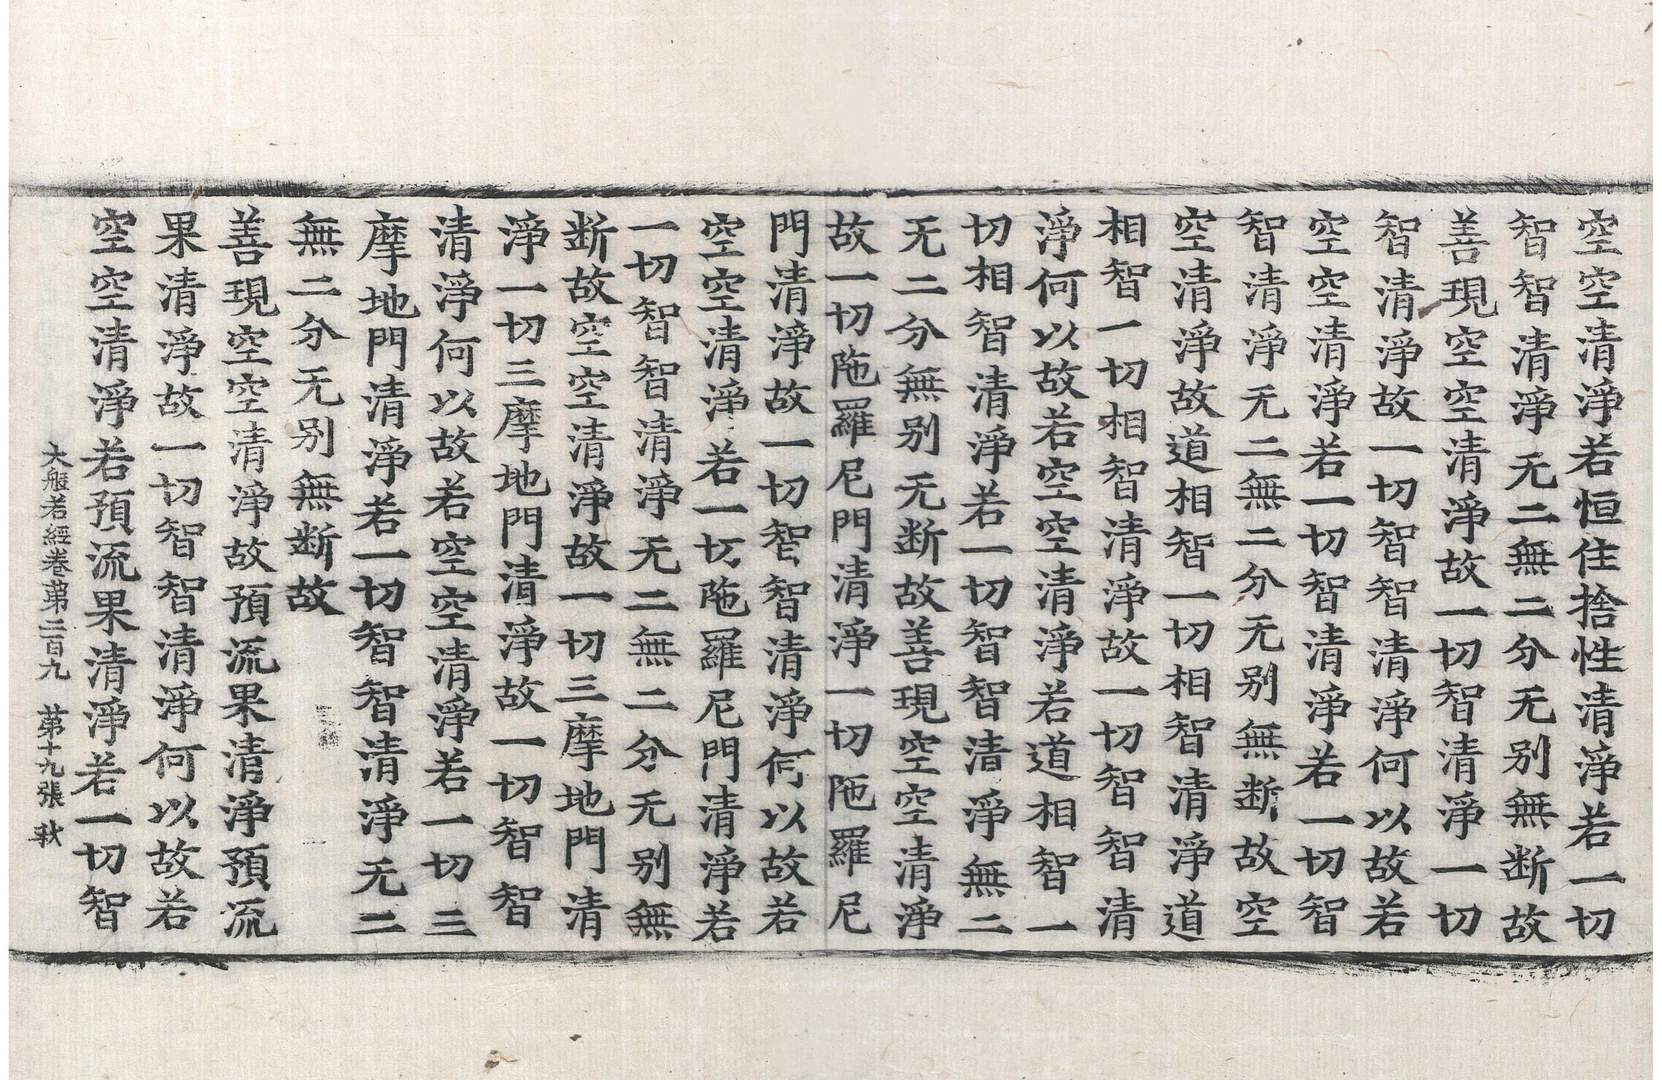 空空清淨若恒住捨性清淨若一切
智智清淨无二無二分无别無断故
善現空空清淨故一切智清淨一切
智清淨故一切智智清淨何以故若
空空清淨若一切智清淨若一切智
智清淨无二無二分无别無断故空
空清淨故道相智一切相智清淨道
相智一切相智清淨故一切智智清
淨何以故若空空清淨若道相智一
切相智清淨若一切智智清淨無二
无二分無别无断故善現空空清淨
故一切陁羅尼門清淨一切陁羅尼
門清淨故一切智智清淨何以故若
空空清淨若一切陁羅尼門清淨若
一切智智清淨无二無二分无别無
断故空空清淨故一切三摩地門清
淨一切三摩地門清淨故一切智智
清淨何以故若空空清淨若一切三
摩地門清淨若一切智智清淨无二
無二分无别無断故
善現空空清淨故預流果清淨預流
果清淨故一切智智清淨何以故若
空空清淨若預流果清淨若一切智
大般若經卷苐二百九 苐十九張 秋